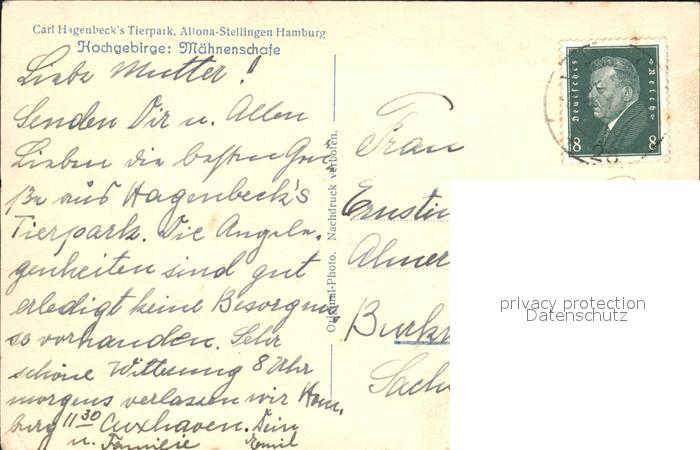 Carl Hagenbeck's Tierpark, Altona-Stellingen Hamburg
Hochgebirge: Mähnenschafe
Liebe Mutter!
Senden Dir u. Allen
Lieben die besten Grü-
ße aus Hagenbeck's
Tierpark. Die Angele-
genheiten sind gut
erledigt keine Besorgnis
so vorhanden. Sehr
schöne Witterung 8 Uhr
morgens verlassen wir Ham-
burg 11 30 Cuxhaven. Dein
u. Familie Emil
Original-Photo. Nachdruck verboten.
Deutsches Reich
8 8
Frau
Ernstin
Almer
Burk
Sach
privacy protection
Datenschutz